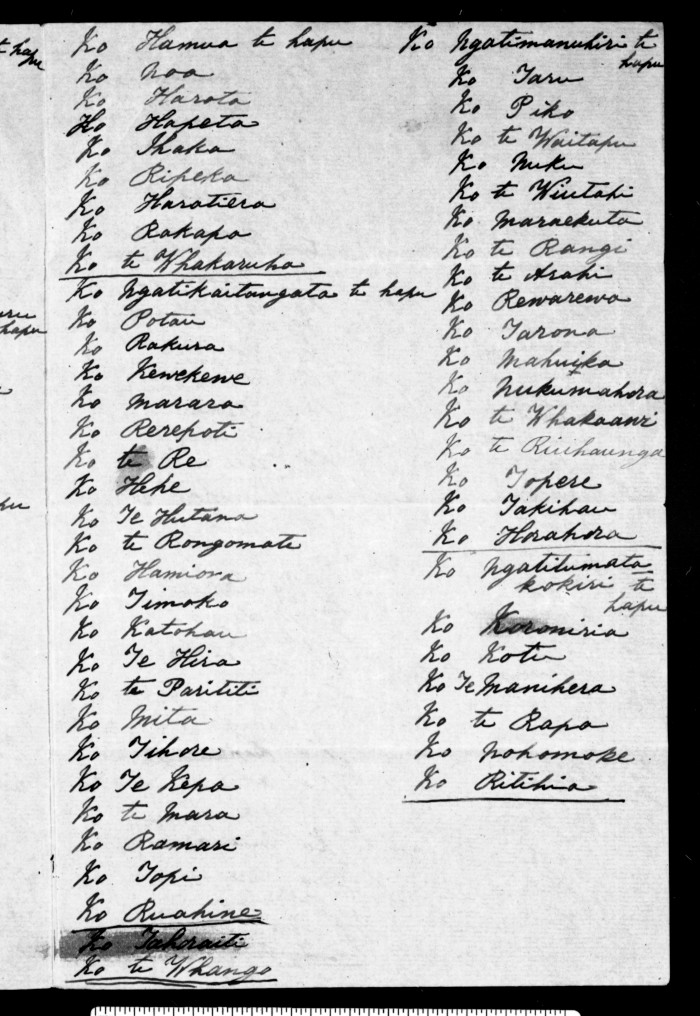 te hapu
hapu
Ko Hamua te hapu
Ko Noa
Ko Harota
Ko Hapeta
Ko Ihaka
Ko Ripeka
Ko Haratiera
Ko Rakapa
Ko te Whakaruha
Ko Ngatikaitangata te hapu
Ko Potau
Ko Rakura
Ko Kewekewe
Ko Marara
Ko Rerepoti
Ko te Re
Ko Heke
Ko Te Hutana
Ko te Rongomate
Ko Hamiora
Ko Timoko
Ko Katohau
Ko Te Hira
Ko te Parititi
Ko Mita
Ko Tihore
Ko Te Kepa
Ko te Mara
Ko Ramari
Ko Topi
Ko Ruahine
Ko Tahoraiti
Ko te Whango
Ko Ngatimanuhiri te
hapu
Ko Taru
Ko Piko
Ko te Waitapu
Ko Nuku
Ko te Wiutahi
Ko Maraekuta
Ko te Rangi
Ko te Arahi
Ko Rewarewa
Ko Tarona
Ko Mahuika
Ko Nukumahora
Ko te Whakaawi
Ko te
Ko Topere
Ko Takihau
Ko Horahora
Ko Ngatitumata
kokiri te
hapu
Ko Koroniria
Ko Kotu
Ko Te Manihera
Ko te Rapa
Ko Nohomoke
Ko Ritihia